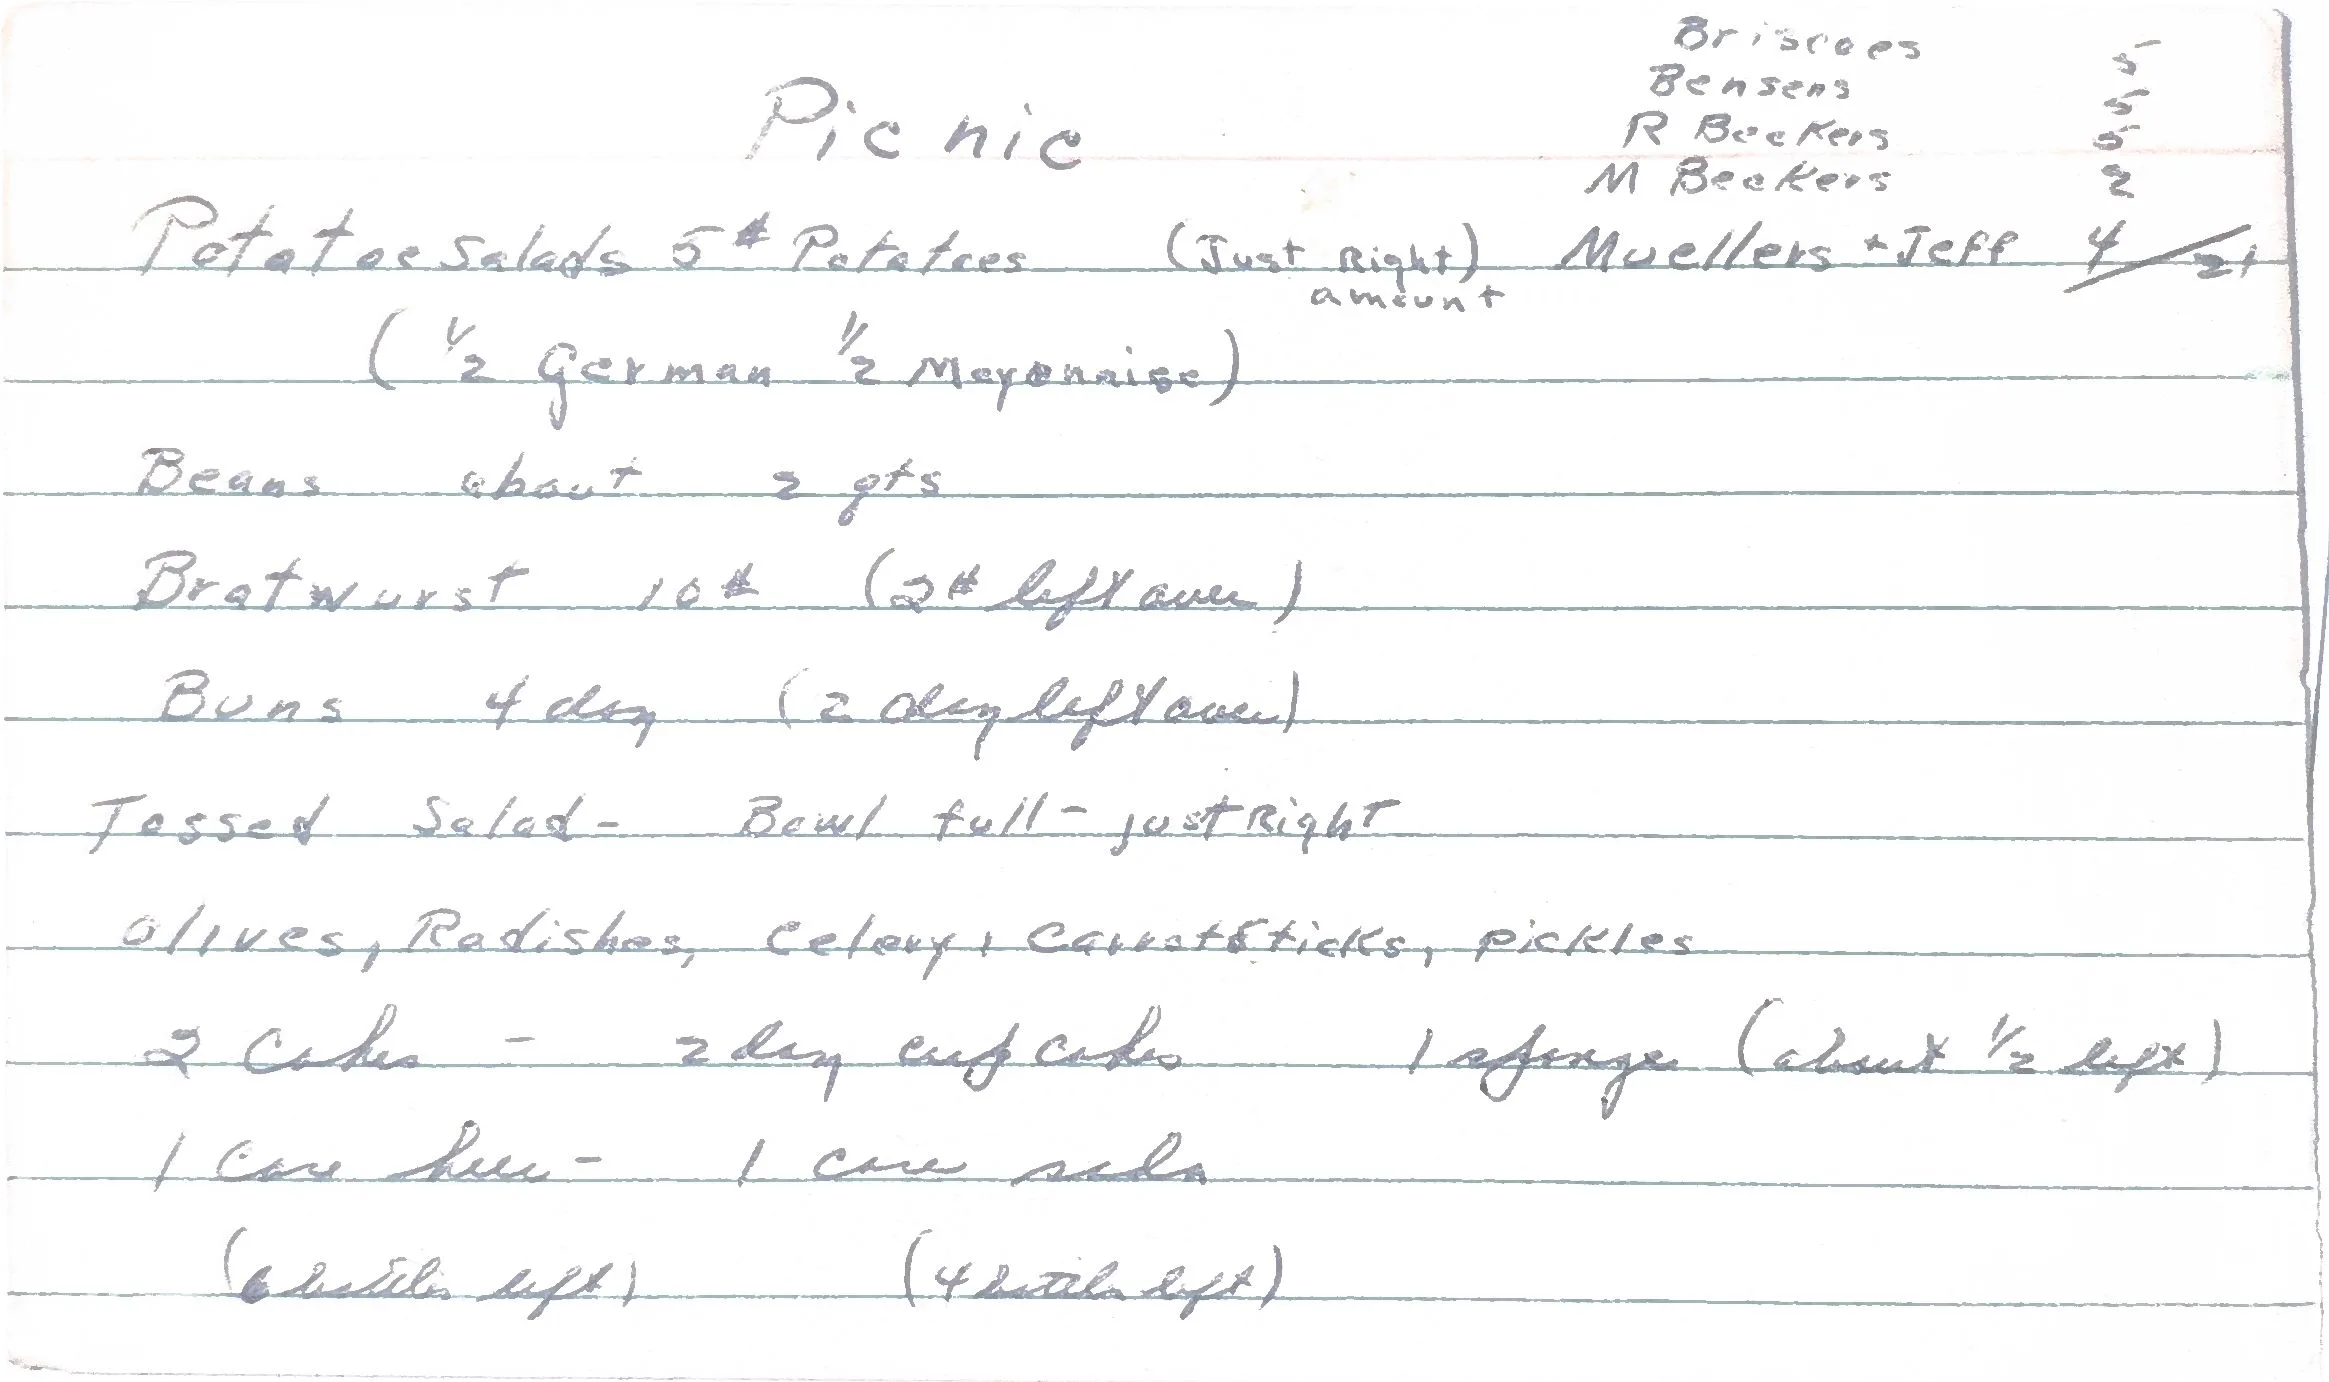 Briscoes 5
Bensens 5
Picnic
R Beckers 5
M Beckers 2
Potatoe Salads 5# Potatoes (Just Right) Muellers + Jeff 4/21
amount
(1/2 German 1/2 Mayonnaise)
Beans about 2 qts
Bratwurst 10# (2# left over)
Buns 4 doz (2 doz left over)
Tossed Salad - Bowl full - just Right
Olives, Radishes, Celery, Carrot Sticks, pickles
2 Cakes - 2 doz cup cakes 1 sponge (about 1/2 left)
1 Case beer - 1 case soda
(6 bottles left) (4 bottles left)